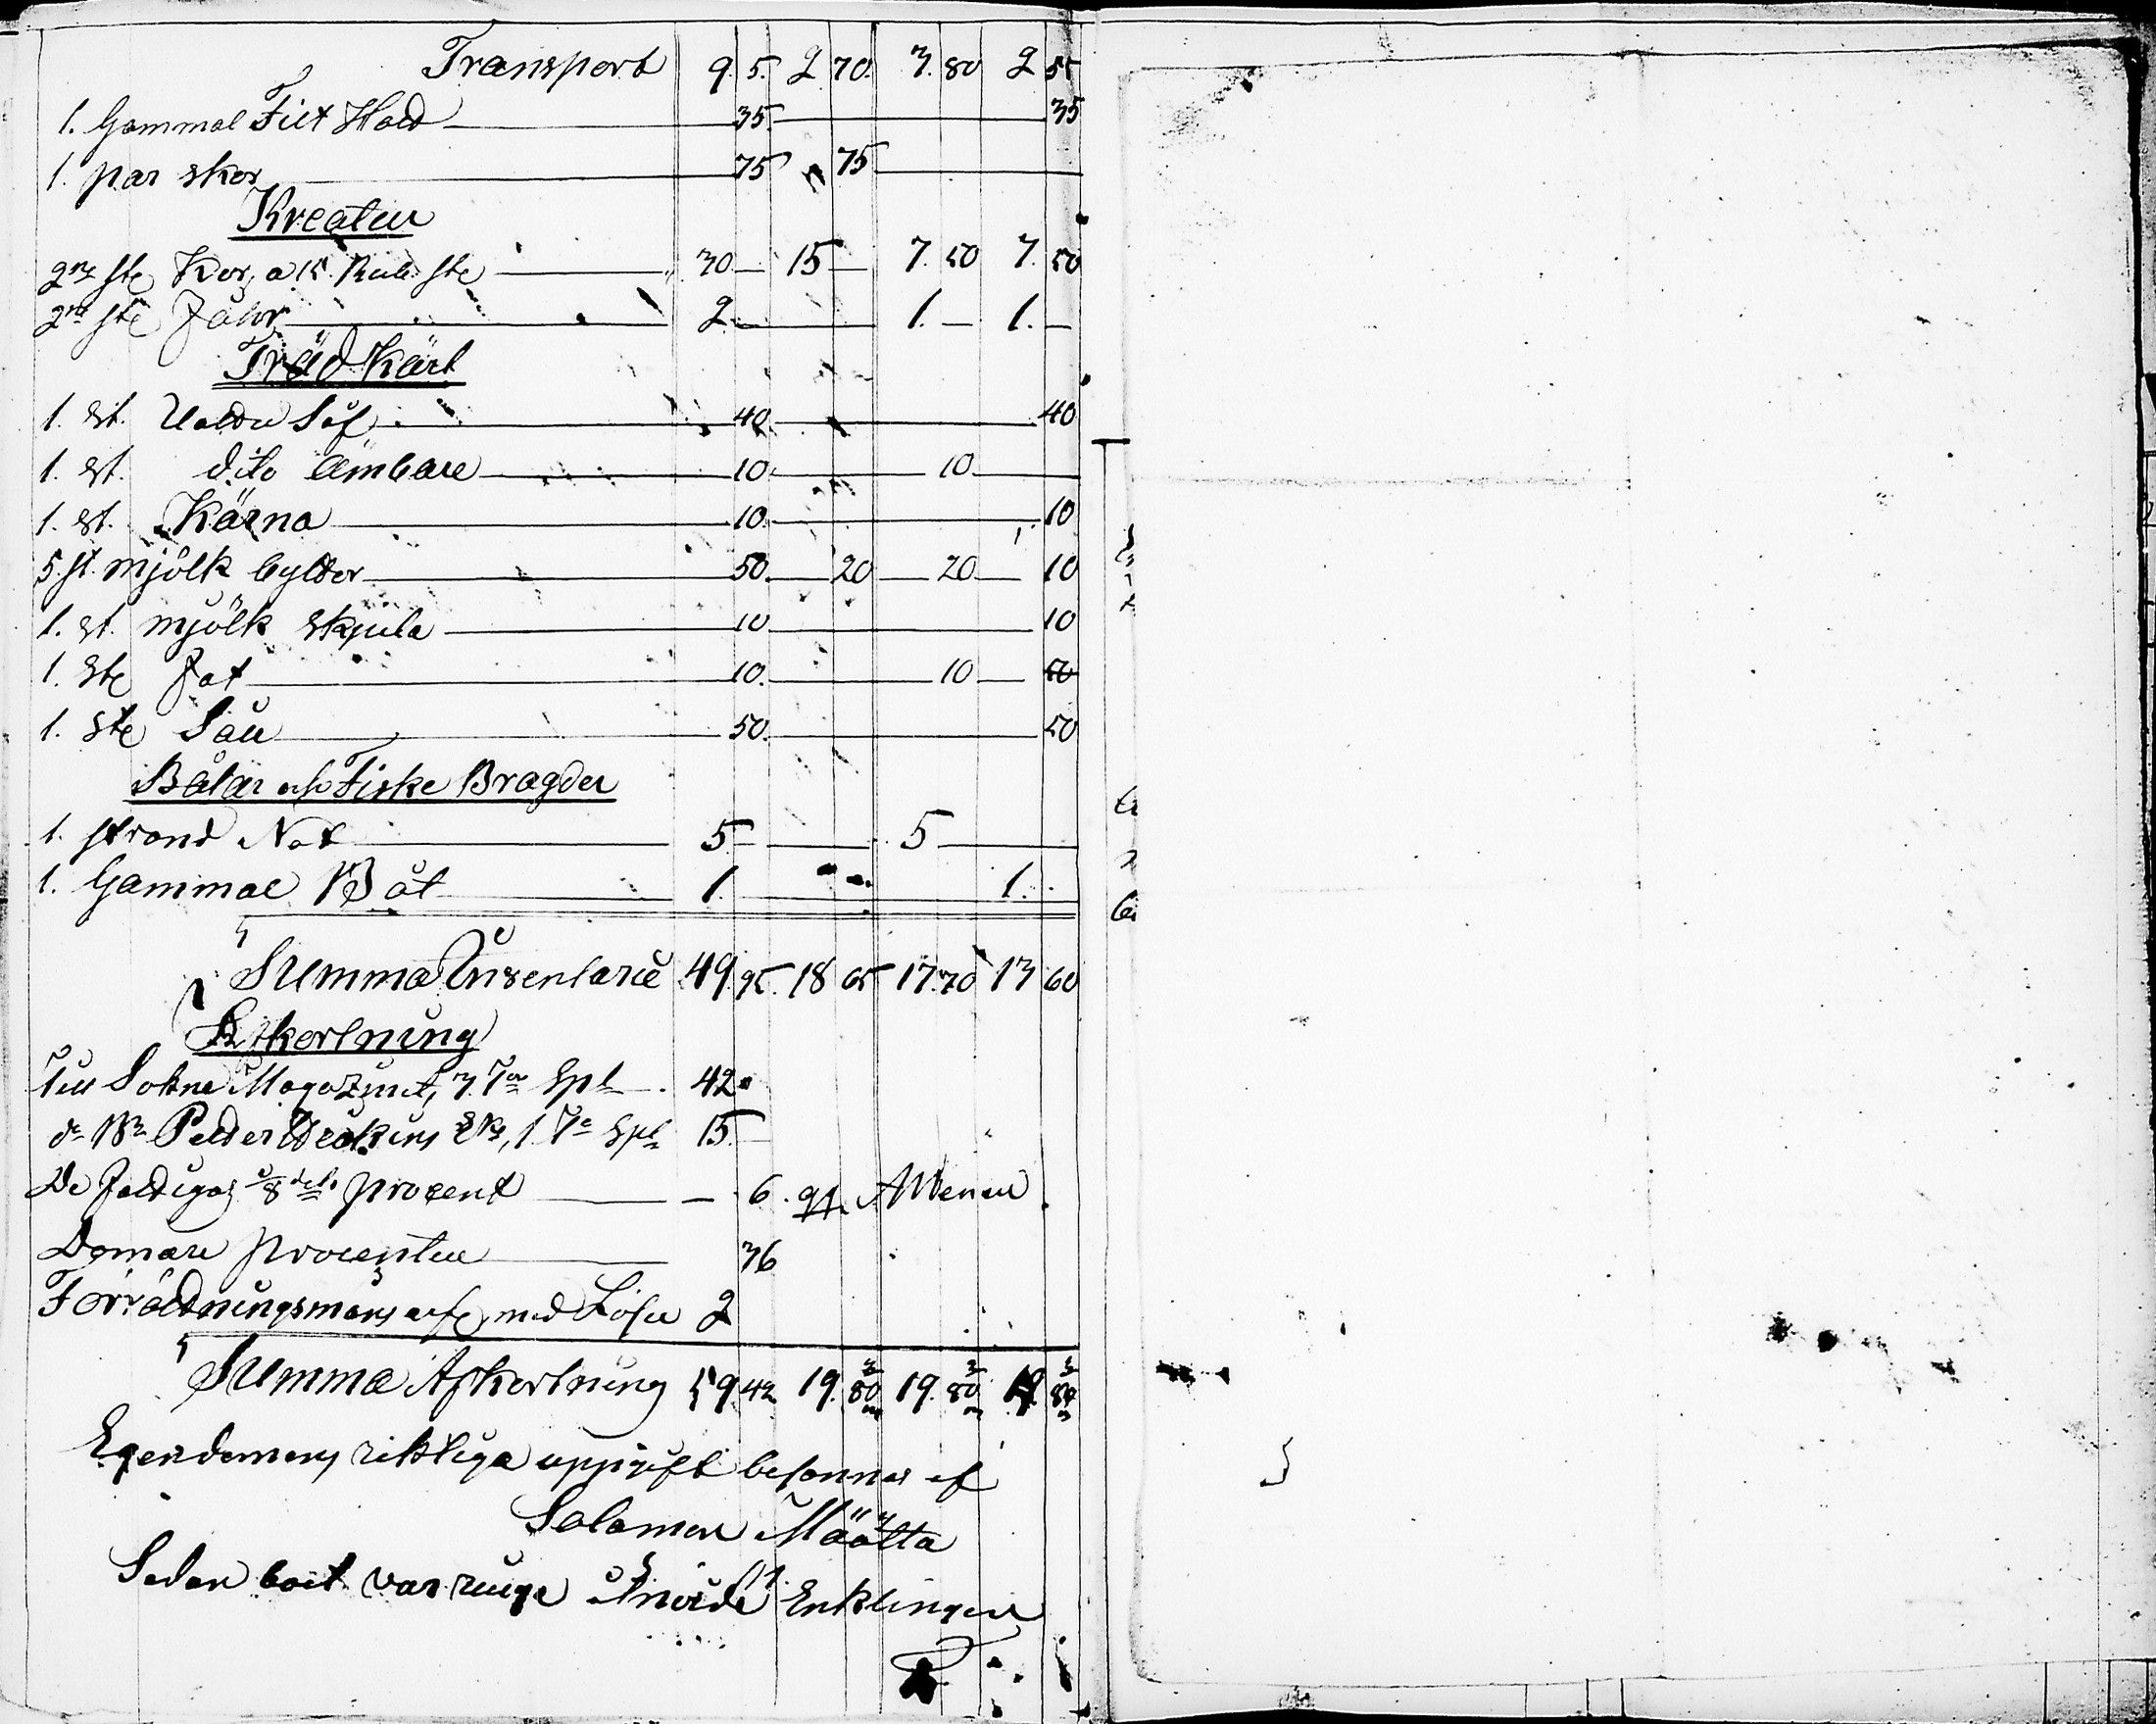 Transport 9. 5. 2 70. 3. 80 2 55
1. Gammal Filt Hald 35. 35
1. par skor 75 75
Kreatur
2ne ste Kor, a 15 Rub ste 30 15 7. 50 7. 50
2ne ste Fåhr 2 1. 1.
Träd Kärl
1. st. Så 40 40
1. st. dito ämbare 10 10
1. st. Kärna 10. 10
5. st. mjölk bylter 50. 20 20 10
1. st. mjölk skjula 10 10
1. ste Fat 10. 10
1. ste Såu 50. 50
Båtar och Fiske Bragder
1. strand Not 5 5
1. Gammal Båt 1. 1.
Summa Inventarie 49. 95. 18 65 17. 70 13 60
Afkortning
Till Sokne Magazinet, 3. Tor Spl 42
do Bn Petter 1. Ta Spl 15
De Fattigas 1/8 dels procent 6.
Domare procenten 36
Förrättningsmäns arfe med Lösen 2
Summa Afkortning 59. 42 19. 80 19. 80 19. 80
Egendomens riktiga uppgift besannas af
Salamon Määtta
Sedan boet var ringa Enklingen